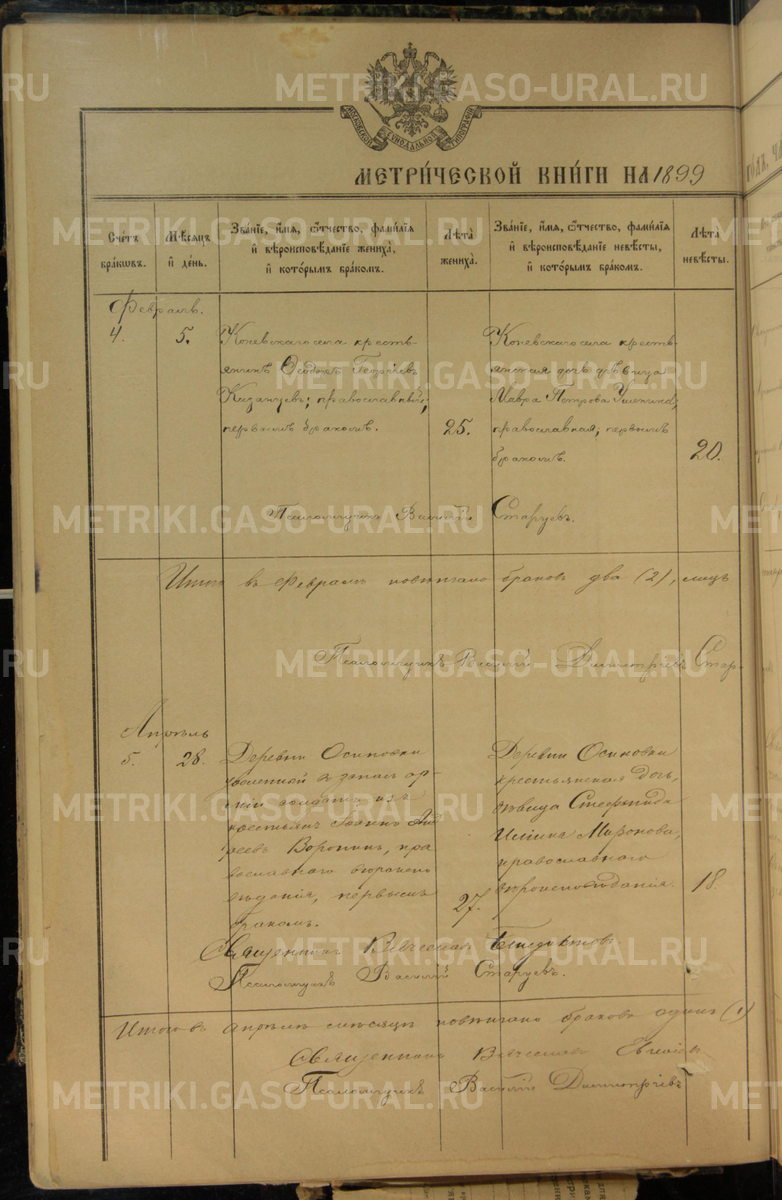 МЕТРИ́ЧЕСКОЙ КНИ́ГИ НА 1899
Счетъ бра́ковъ.
Мѣ́сяцъ и҆ де́нь.
Зва́нїе, и҆́мѧ, ѻ҆́тчество, фами́лїѧ и҆ вѣроисповѣ́данїе жениха̀, и҆ кото́рымъ бра́комъ.
Лѣ́та жениха̀.
Зва́нїе, и҆́мѧ, ѻ҆́тчество, фами́лїѧ и҆ вѣроисповѣ́данїе невѣ́сты, и҆ кото́рымъ бра́комъ.
Лѣ́та невѣ́сты.
Февраль.
4.
5.
Коневскаго села кресть-
янинъ Ѳеодотъ Георгіевъ
Казанцевъ; православный;
первымъ бракомъ.
25.
Коневскаго села кресть-
янская дочь дѣвица
Мавра Петрова
православная; первымъ
бракомъ.
20.
Псаломщикъ Василій Старцевъ.
Итого въ Февралѣ повѣнчано браковъ два (2), лицъ
Псаломщикъ Василій Димитріевъ Стар-
Апрѣль
5.
28.
Деревни Осиновки
уволенный въ запасъ ар-
міи солдатъ изъ
крестьянъ Іоаннъ Анд
реевъ Воронинъ, пра
вославнаго вѣроиспо
вѣданія, первымъ
бракомъ.
27.
Деревни Осиновки
крестьянская дочь,
дѣвица Стефанида
Миронова,
православнаго
вѣроисповѣданія.
18.
Священникъ Вячеславъ
Псаломщикъ Василій Старцевъ.
Итого въ Апрѣлѣ мѣсяцѣ повѣнчано браковъ одинъ (1)
Священникъ Вячеславъ Евгеніевъ
Псаломщикъ Василій Димитріевъ
METRIKI.GASO-URAL.RU